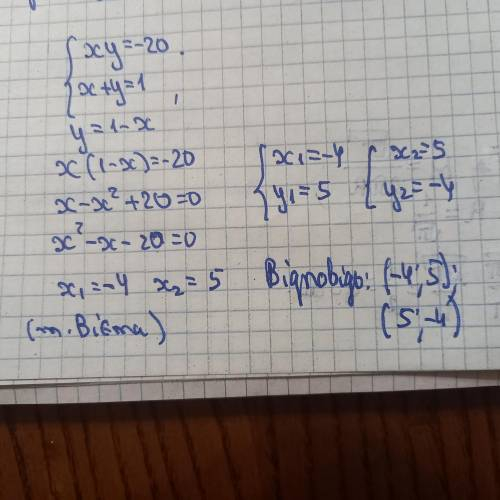 { xy = -20 .
{ x+y=1 ,
y = 1-x
x(1-x)=-20
x-x²+20=0
x²-x-20=0
x₁=-4 x₂=5
(т. Вієта)
{ x₁=-4 { x₂=5
{ y₁=5 { y₂=-4
Відповідь: (-4; 5);
(5; -4)